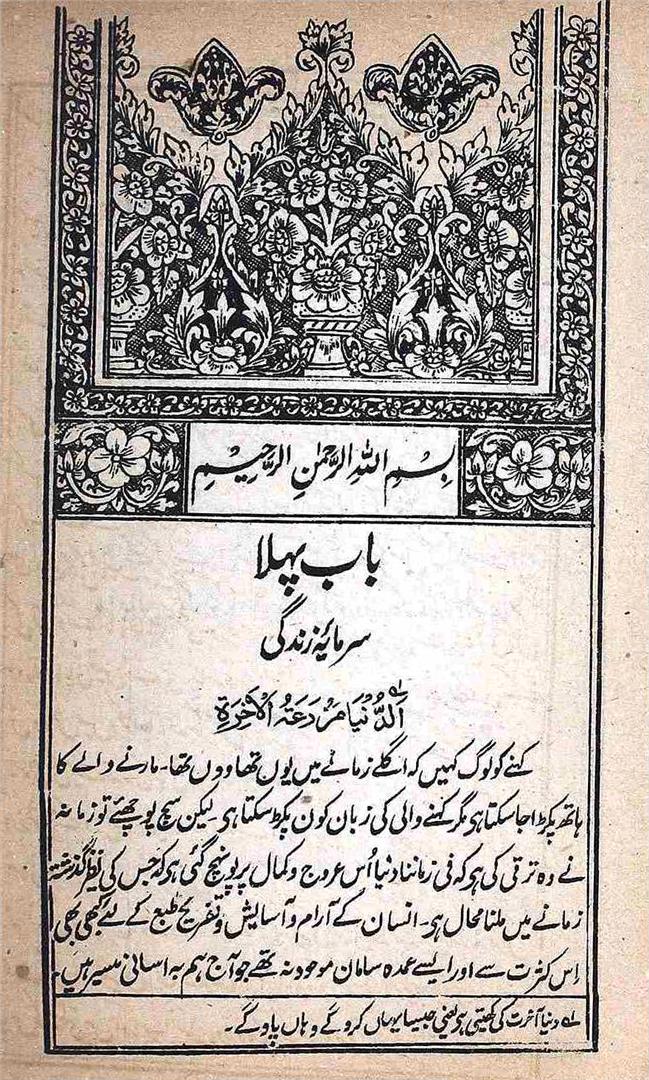 بِسْمِ اللهِ الرَّحْمٰنِ الرَّحِيْمِ
باب پہلا
سرمائۂ زندگی
اَلدُّنْيَا مَزْرَعَةُ الْاٰخِرَةِ
کہنے کو لوگ کہیں کہ اگلے زمانے میں یوں تھا ووں تھا۔ مارنے والے کا
ہاتھ پکڑا جا سکتا ہی مگر کہنے والی کی زبان کون پکڑ سکتا ہی لیکن سچ پوچھئے تو زمانہ
نے وہ ترقی کی ہی کہ فی زماننا دنیا اُس عروج و کمال پر پہونچ گئی ہی کہ جس کی نظیر گذشتہ
زمانے میں ملنا محال ہی۔ انسان کے آرام و آسایش و تفریح طبع کے لئے کبھی بھی
اِس کثرت سے اور ایسے عمدہ سامان موجود نہ تھے جو آج ہم بہ آسانی میسر ہیں۔
لے دنیا آخرت کی کھیتی ہی یعنی جیسا یہاں کروگے وہاں پاوگے۔